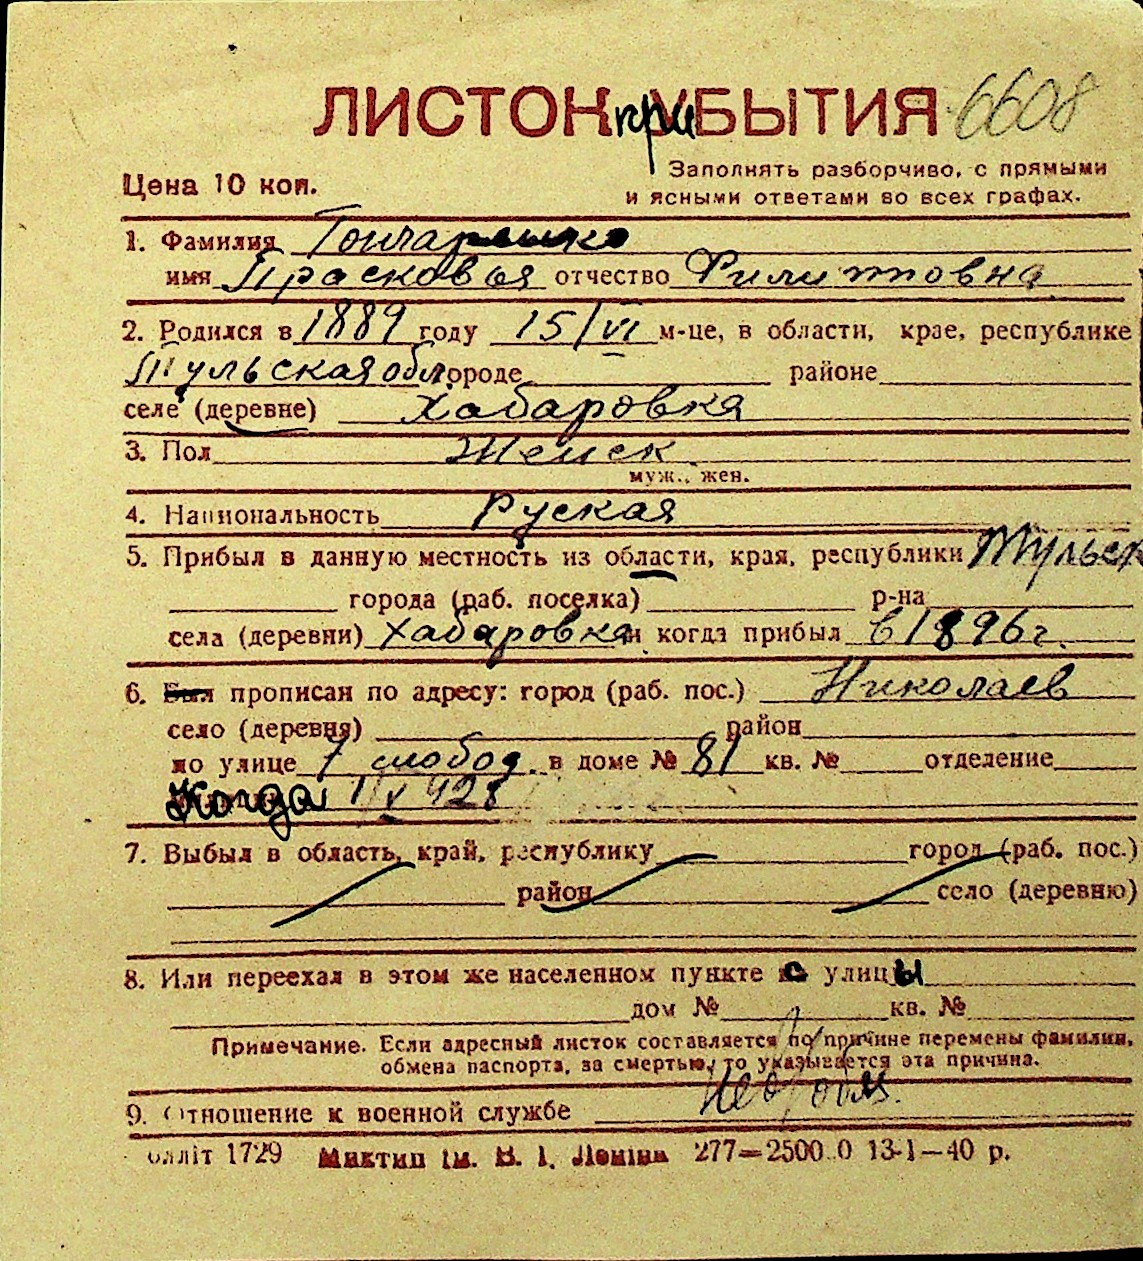 ЛИСТОК прибытия 6608
Цена 10 коп.
Заполнять разборчиво, с прямыми
и ясными ответами во всех графах.
1. Фамилия
имя Прасковья отчество Филипповна
2. Родился в 1889 году 15/VI м-це, в области, крае, республике
Тульская обл. городе районе
селе (деревне) Хабаровка
3. Пол Женск.
муж., жен.
4. Национальность Руская
5. Прибыл в данную местность из области, края, республики Тульск
города (раб. поселка) р-на
села (деревни) Хабаровка и когда прибыл в 1896 г.
6. прописан по адресу: город (раб. пос.) Николаев
село (деревня) район
по улице 7 слобод. в доме № 81 кв. № отделение
Когда
7. Выбыл в область, край, республику город (раб. пос.)
район село (деревню)
8. Или переехал в этом же населенном пункте с улицы
дом № кв. №
Примечание. Если адресный листок составляется по причине перемены фамилии,
обмена паспорта, за смертью, то указывается эта причина.
9. Отношение к военной службе
олліт 1729 Миктип ім. В. І. Леніна 277—2500.0 13-1—40 р.